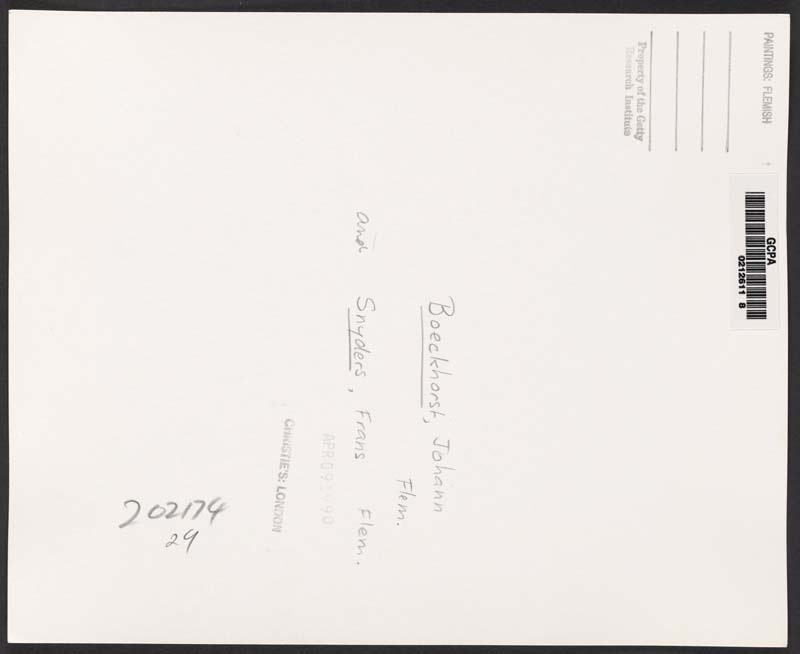 PAINTINGS: FLEMISH
Property of the Getty
Research Institute
GCPA
0212611 8
Boeckhorst, Johann
Flem.
and Snyders, Frans Flem.
APR 09 1990
CHRISTIE'S: LONDON
202174
29